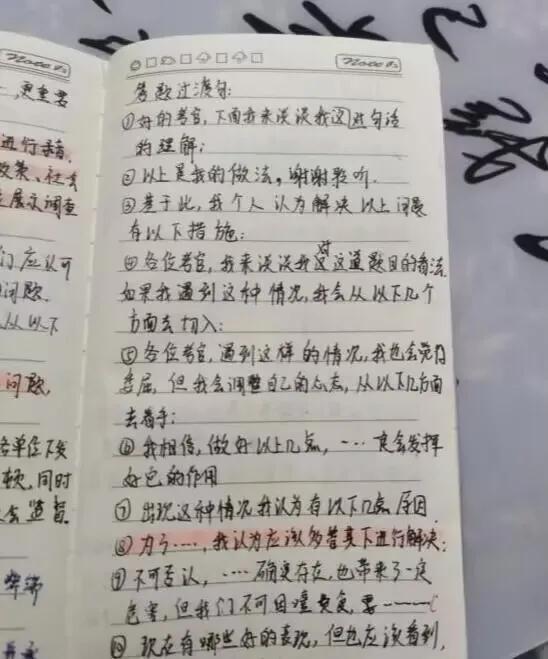 ，更重要
进行
政策、社会
展示调查
门应认可
问题.
从以下
问题,
各单位不发
顿,同时
会监督.
Note's
答题过渡句:
①好的考官,下面我来谈谈我这对句话
的理解:
②以上是我的做法,谢谢聆听.
③基于此,我个人认为解决以上问题
有以下措施:
④各位考官,我来谈谈我对这道题目的看法.
如果我遇到这种情况,我会从以下几个
方面去切入:
⑤各位考官,遇到这样的情况,我也会觉得
委屈,但我会调整自己的心态,从以下几方面
去着手:
⑥我相信,做好以上几点,……定会发挥
好它的作用
⑦出现这种情况我认为有以下几点原因.
⑧为了……,我认为应该多管其下进行解决:
⑨不可否认,……确实存在,也带来了一定
危害,但我们不可因噎废食,要……
⑩现在有哪些好的表现,但也应该看到,